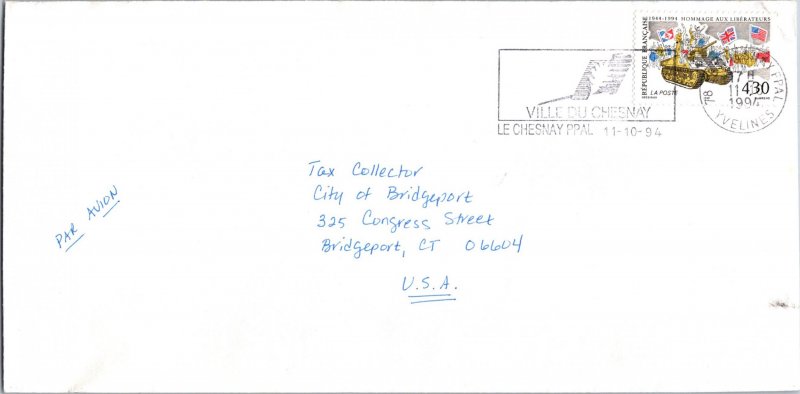 1944-1994 HOMMAGE AUX LIBÉRATEURS
RÉPUBLIQUE FRANÇAISE
LA POSTE
4,30
VILLE DU CHESNAY
LE CHESNAY PPAL 11-10-94
PPAL
17H
11
1994
78
YVELINES
Tax Collector
City of Bridgeport
325 Congress Street
Bridgeport, CT 06604
U.S.A.
PAR AVION